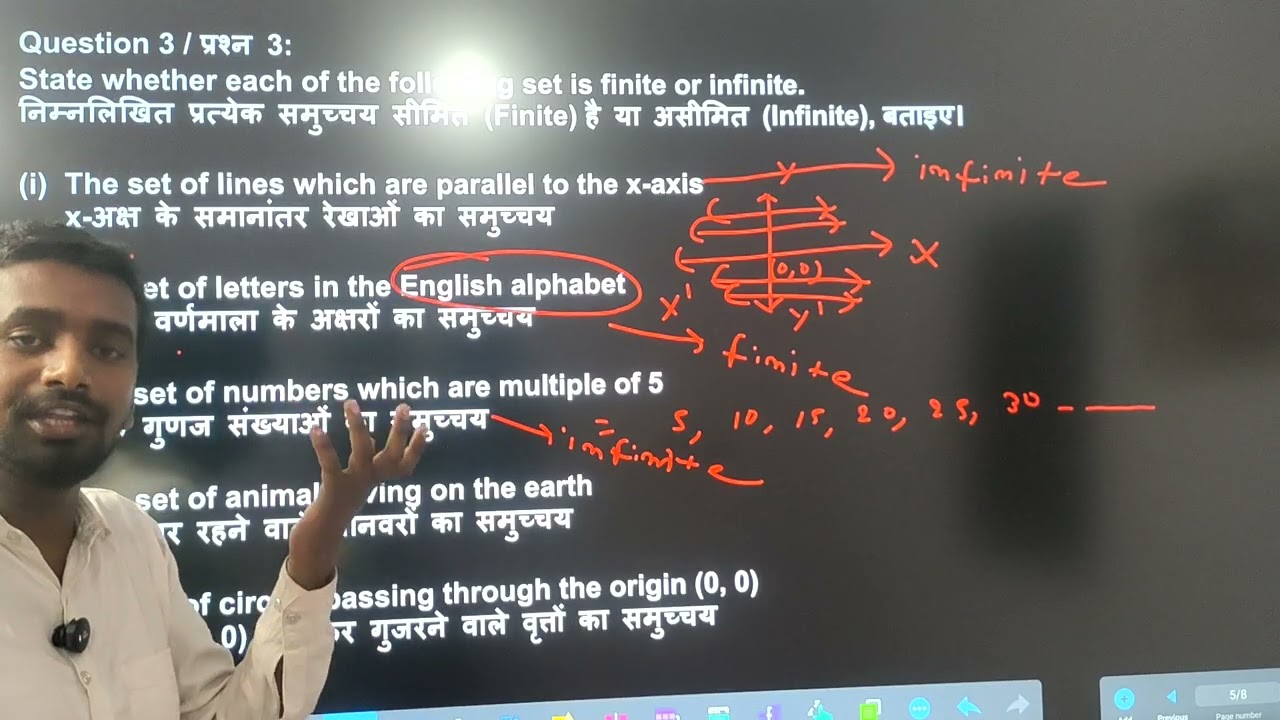 Question 3 / प्रश्न 3:
State whether each of the following set is finite or infinite.
निम्नलिखित प्रत्येक समुच्चय सीमित (Finite) है या असीमित (Infinite), बताइए।
(i) The set of lines which are parallel to the x-axis
infinite
x-अक्ष के समानांतर रेखाओं का समुच्चय
X
(0,0)
X'
Y'
of letters in the English alphabet
वर्णमाला के अक्षरों का समुच्चय
finite
set of numbers which are multiple of 5
= 5, 10, 15, 20, 25, 30
गुणज संख्याओं का समुच्चय
infinite
set of on the earth
रहने का समुच्चय
passing through the origin (0, 0)
0) गुजरने वाले वृत्तों का समुच्चय
5/8
Previous
Page number